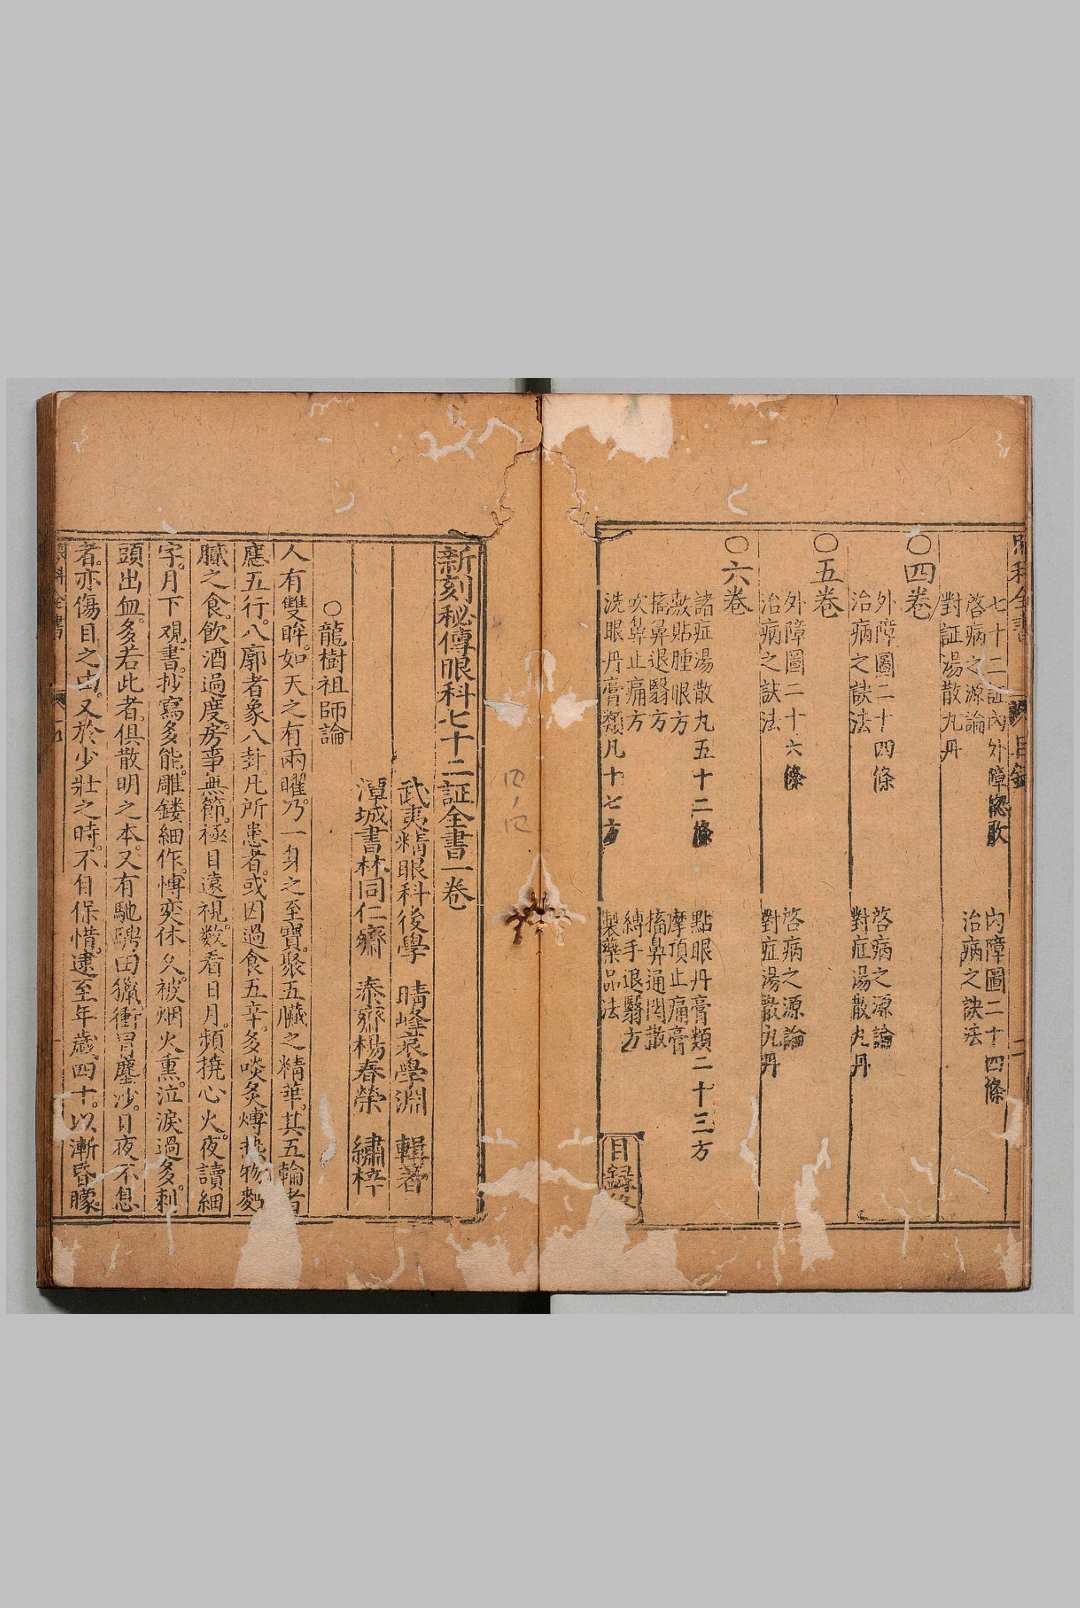 七十二証內外障總歌
內障圖二十四條
啓病之源論
治病之訣法
對証湯散丸丹
〇四卷
外障圖二十四條
啓病之源論
治病之訣法
對症湯散丸丹
〇五卷
外障圖二十六條
啓病之源論
治病之訣法
對症湯散丸丹
〇六卷
諸症湯散丸五十二條
點眼丹膏類二十三方
敷貼腫眼方
摩頂止痛膏
搐鼻退翳方
搐鼻通関散
吹鼻止痛方
縛手退翳方
洗眼丹膏類凡十七方
製藥品法
目錄終
新刻秘傳眼科七十二証全書一卷
武夷精眼科後學 晴峰袁學淵 輯著
潭城書林同仁齋 泰齋楊春榮 繡梓
〇龍樹祖師論
人有雙眸。如天之有兩曜。乃一身之至寶。聚五臟之精華。其五輪者
應五行。八廓者象八卦。凡所患者。或因過食五辛。多啖炙煿熱物麪
臟之食。飲酒過度。房事無節。極目遠視。数看日月。頻撓心火。夜讀細
字。月下觀書。抄寫多能。雕鏤細作。慱奕休久。被烟火熏。泣淚過多。刺
頭出血。多若此者。俱散明之本。又有馳騁田獵。衝冒塵沙。日夜不息
者。亦傷目之由。又於少壯之時。不自保惜。逮至年歲四十。以漸昏朦。